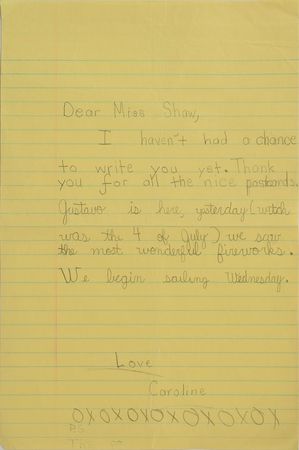 Dear Miss Shaw,
I haven't had a chance
to write you yet. Thank
you for all the nice postcards.
Gustavo is here, yesterday (witch
was the 4 of July) we saw
the most wonderful fireworks.
We begin sailing Wednesday.
Love
Caroline
OXOXOXOXOXOXOXOX
P.S.